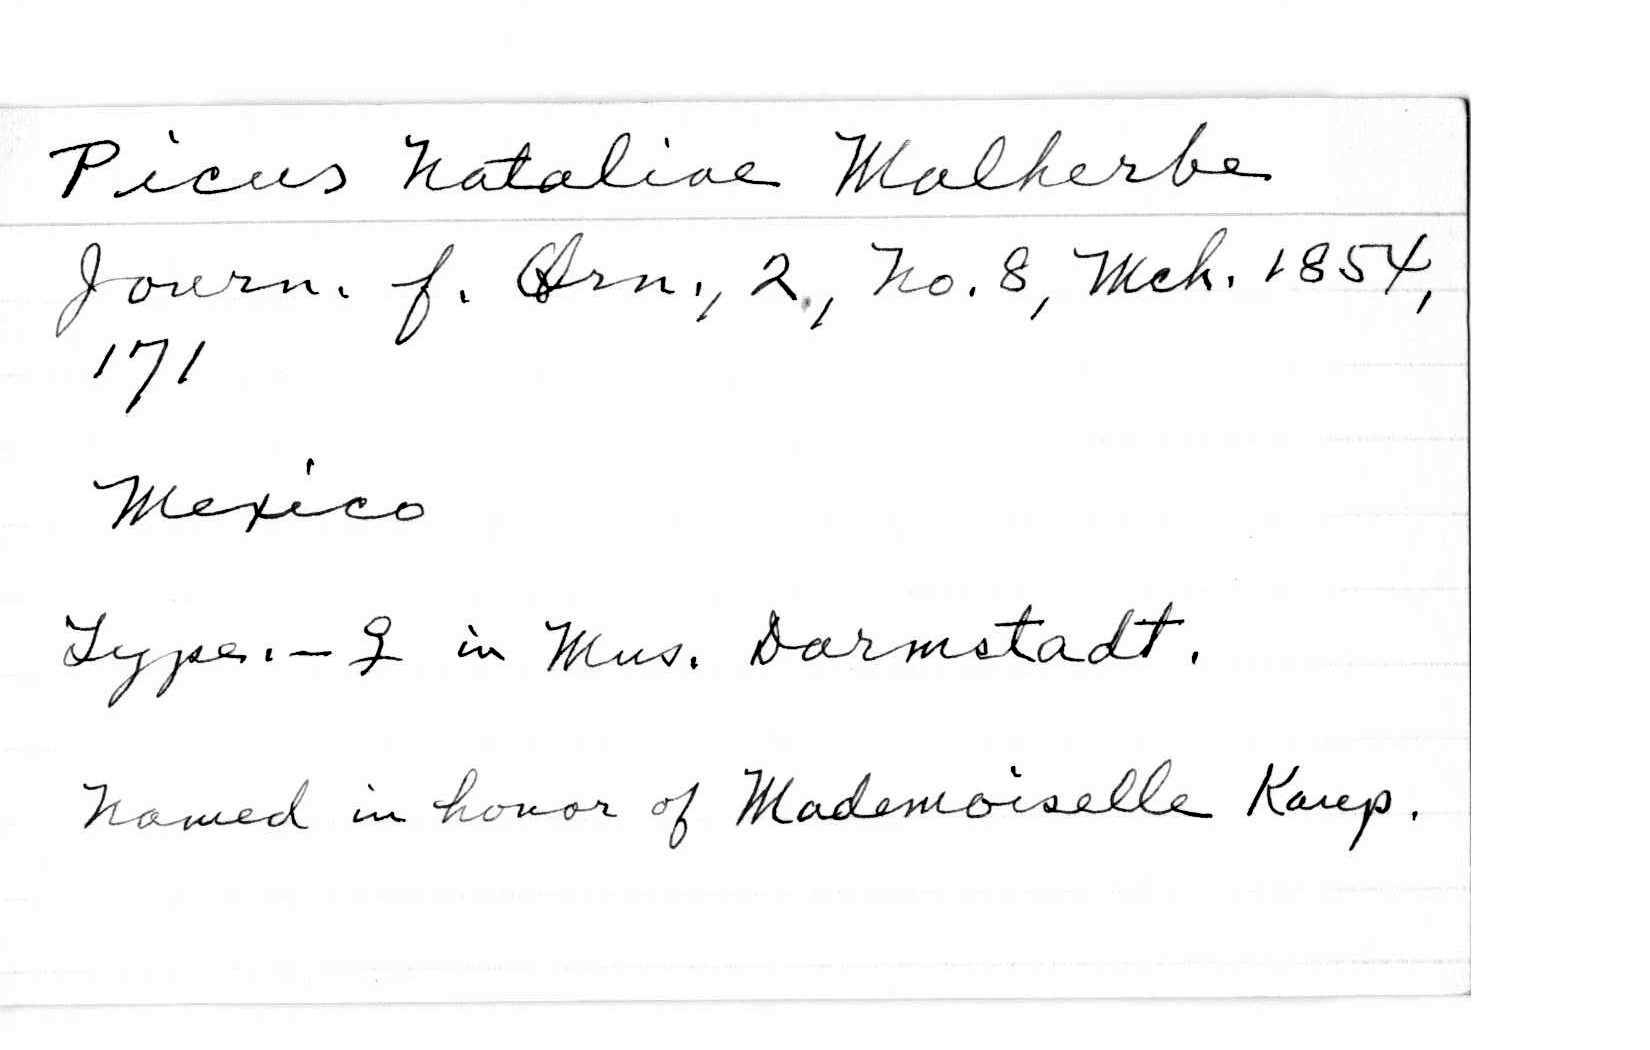 Picus Nataliae Malherbe
Journ. f. Orn., 2, No. 8, Mch. 1854,
171
Mexico
Type. — ♀ in Mus. Darmstadt.
Named in honor of Mademoiselle Kaup.